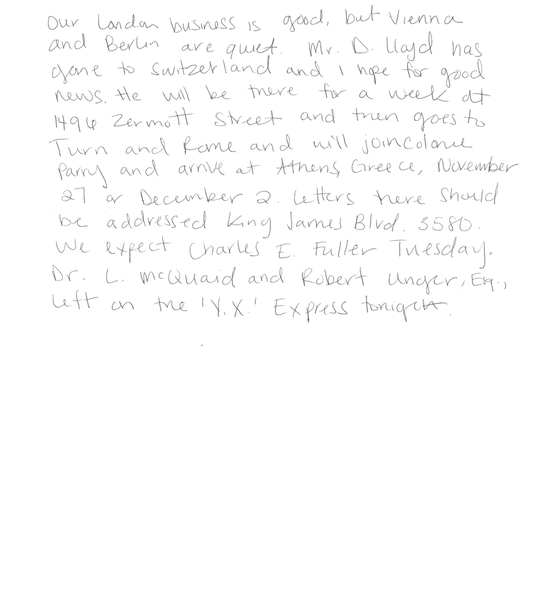 Our London business is good, but Vienna
and Berlin are quiet. Mr. D. Lloyd has
gone to Switzerland and I hope for good
news. He will be there for a week at
1496 Zermott Street and then goes to
Turn and Rome and will join Colone
Parry and arrive at Athens, Greece, November
27 or December 2. Letters there should
be addressed King James Blvd. 3580.
We expect Charles E. Fuller Tuesday.
Dr. L. McQuaid and Robert Unger, Esq.,
left on the 'Y.X.' Express tonight.